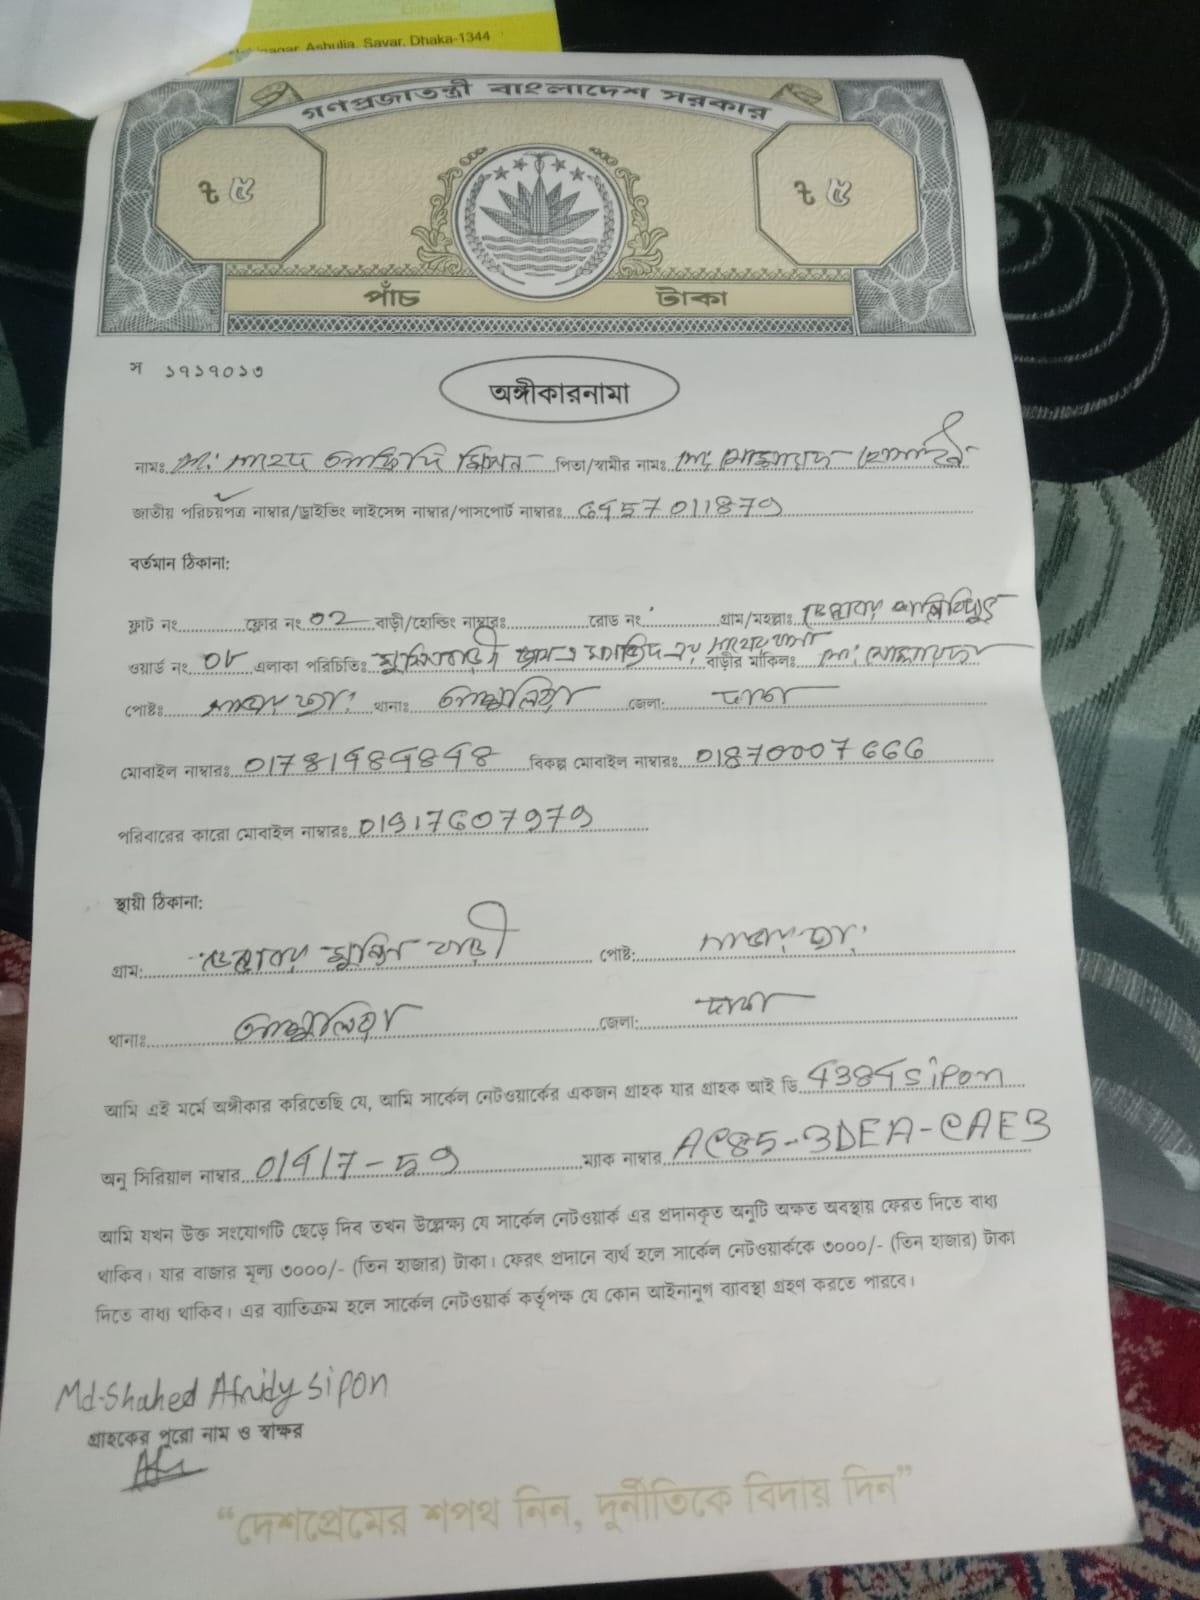 nagar, Ashulia, Savar, Dhaka-1344
গণপ্রজাতন্ত্রী বাংলাদেশ সরকার
৳ ৫ ৳ ৫
পাঁচ টাকা
স ১৭১৭০১৩
অঙ্গীকারনামা
নামঃ মো: সাহেদ আফ্রিদি সিপন পিতা/স্বামীর নামঃ মো:
জাতীয় পরিচয়পত্র নাম্বার/ড্রাইভিং লাইসেন্স নাম্বার/পাসপোর্ট নাম্বারঃ
বর্তমান ঠিকানা:
ফ্লাট নং ফ্লোর নং 02 বাড়ী/হোল্ডিং নাম্বারঃ রোড নং গ্রাম/মহল্লাঃ
ওয়ার্ড নং 08 এলাকা পরিচিতিঃ বাড়ীর মালিকঃ মো:
পোষ্টঃ থানাঃ আশুলিয়া জেলা: ঢাকা
মোবাইল নাম্বারঃ বিকল্প মোবাইল নাম্বারঃ 01870007666
পরিবারের কারো মোবাইল নাম্বারঃ
স্থায়ী ঠিকানা:
গ্রাম: পোষ্ট:
থানাঃ আশুলিয়া জেলা: ঢাকা
আমি এই মর্মে অঙ্গীকার করিতেছি যে, আমি সার্কেল নেটওয়ার্কের একজন গ্রাহক যার গ্রাহক আই ডি
অনু সিরিয়াল নাম্বার ম্যাক নাম্বার AC85-3DEA-CAE3
আমি যখন উক্ত সংযোগটি ছেড়ে দিব তখন উল্লেক্ষ্য যে সার্কেল নেটওয়ার্ক এর প্রদানকৃত অনুটি অক্ষত অবস্থায় ফেরত দিতে বাধ্য
থাকিব। যার বাজার মূল্য ৩০০০/- (তিন হাজার) টাকা। ফেরৎ প্রদানে ব্যর্থ হলে সার্কেল নেটওয়ার্ককে ৩০০০/- (তিন হাজার) টাকা
দিতে বাধ্য থাকিব। এর ব্যাতিক্রম হলে সার্কেল নেটওয়ার্ক কর্তৃপক্ষ যে কোন আইনানুগ ব্যাবস্থা গ্রহণ করতে পারবে।
Md-Shahed Afridy Sipon
গ্রাহকের পুরো নাম ও স্বাক্ষর
“দেশপ্রেমের শপথ নিন, দুর্নীতিকে বিদায় দিন”